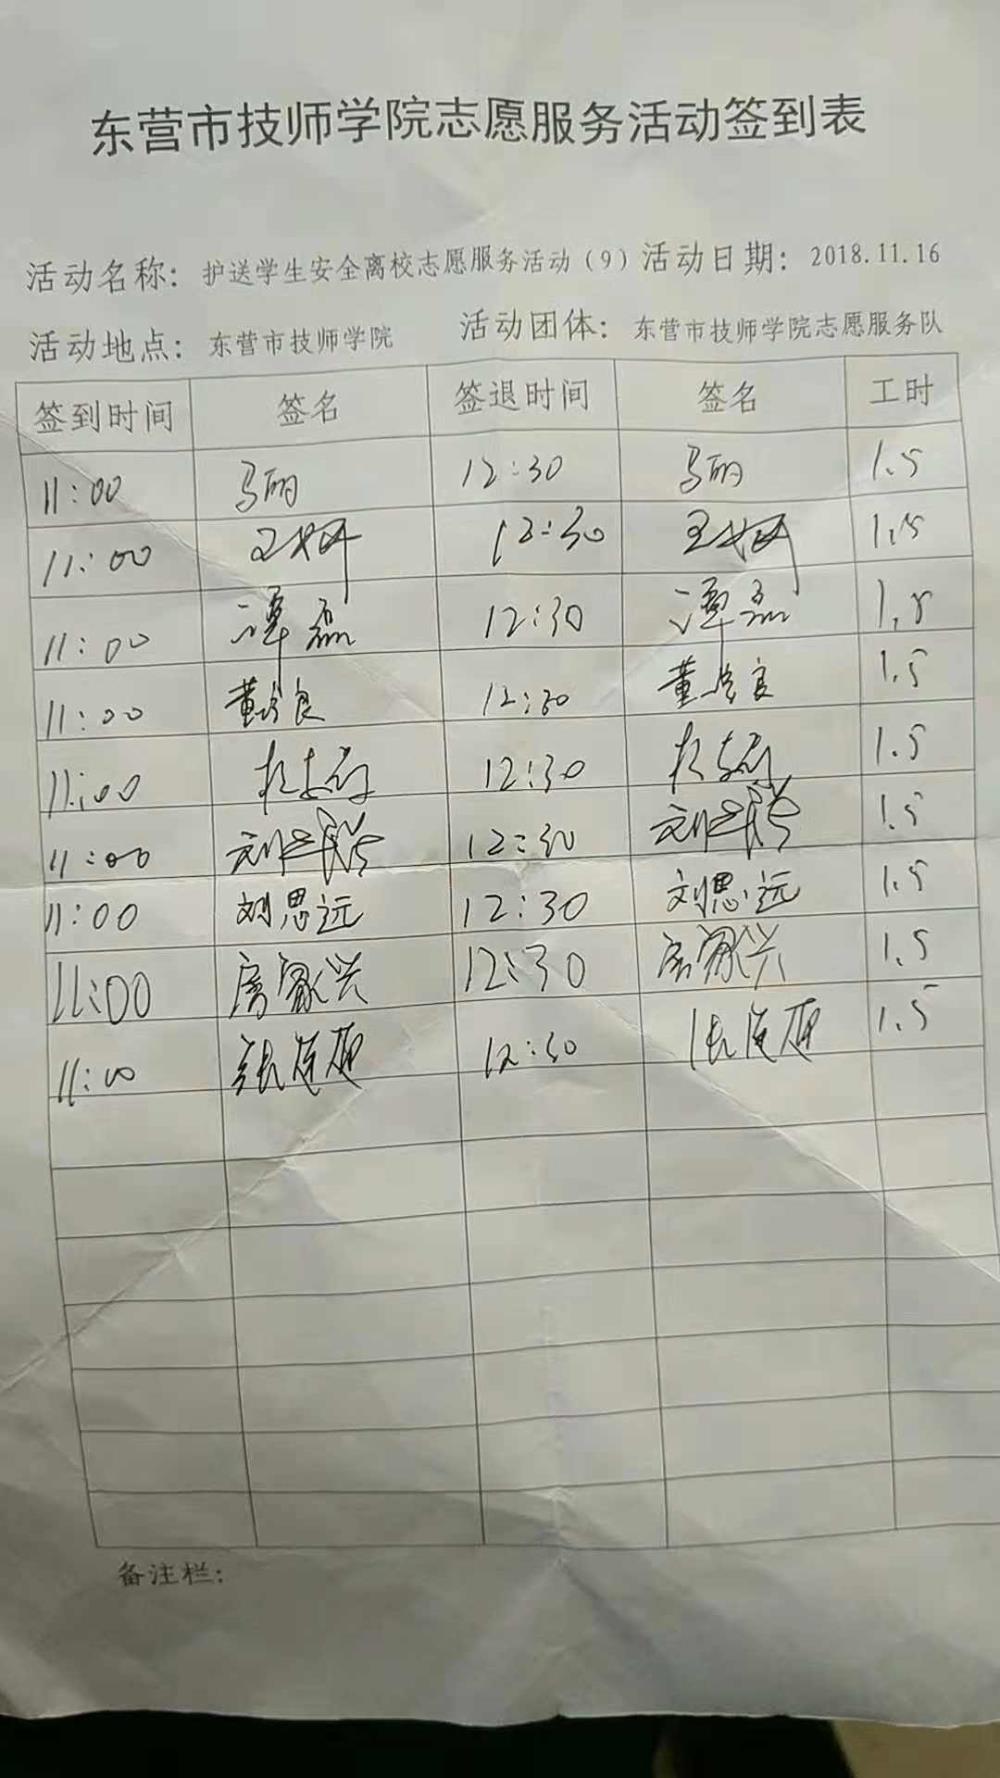 东营市技师学院志愿服务活动签到表
活动名称：护送学生安全离校志愿服务活动（9）活动日期：2018.11.16
活动地点：东营市技师学院 活动团体：东营市技师学院志愿服务队
签到时间 签名 签退时间 签名 工时
11:00 马丽 12:30 马丽 1.5
11:00 王妍 12:30 王妍 1.5
11:00 谭磊 12:30 谭磊 1.5
11:00 董 良 12:30 董 良 1.5
11:00 12:30 1.5
11:00 刘 12:30 刘 1.5
11:00 刘思远 12:30 刘思远 1.5
11:00 房家兴 12:30 房家兴 1.5
11:00 张莲 12:30 张莲 1.5
备注栏：